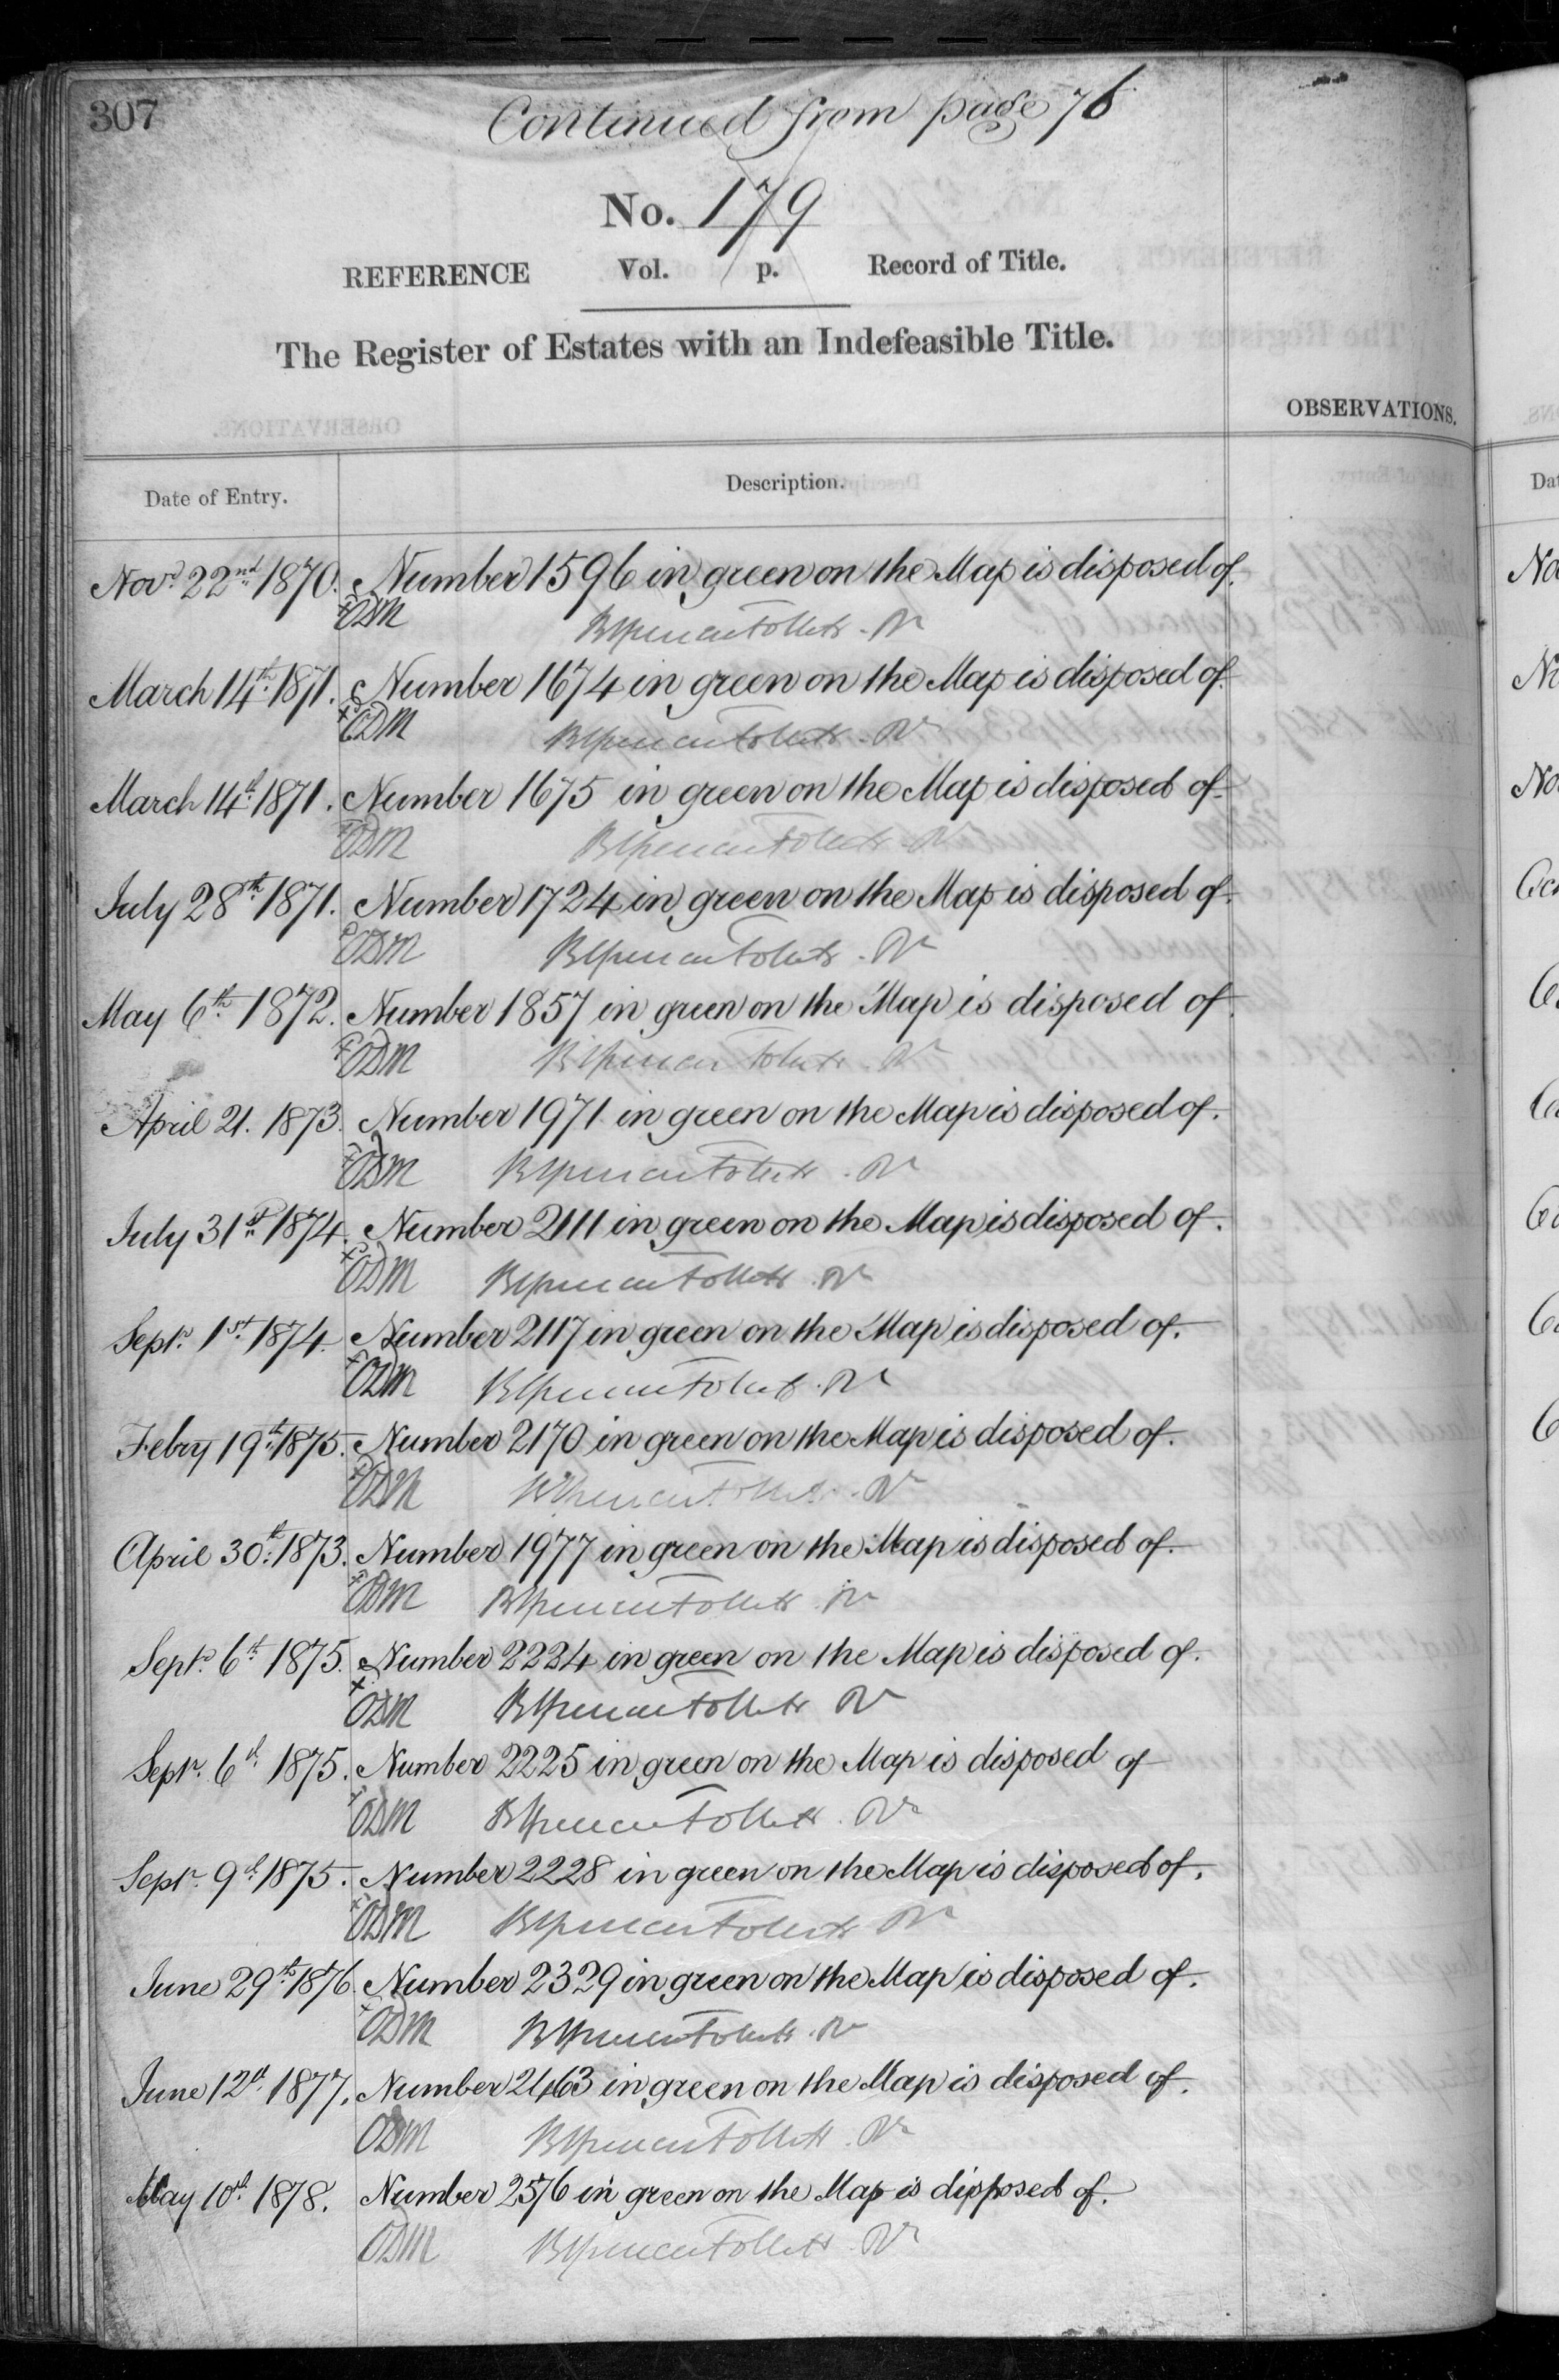 307
Continued from page 76
No. 179
REFERENCE Vol. p. Record of Title.
The Register of Estates with an Indefeasible Title.
OBSERVATIONS.
Date of Entry. Description.
Novr. 22nd 1870. Number 1596 in green on the Map is disposed of.
ODM
March 14th 1871. Number 1674 in green on the Map is disposed of.
ODM
March 14th 1871. Number 1675 in green on the Map is disposed of.
ODM
July 28th 1871. Number 1724 in green on the Map is disposed of.
ODM
May 6th 1872. Number 1857 in green on the Map is disposed of.
ODM
April 21. 1873. Number 1971 in green on the Map is disposed of.
ODM
July 31st 1874. Number 2111 in green on the Map is disposed of.
ODM
Septr. 1st 1874. Number 2117 in green on the Map is disposed of.
ODM
Febry 19th 1875. Number 2170 in green on the Map is disposed of.
ODM
April 30th 1873. Number 1977 in green on the Map is disposed of.
ODM
Septr. 6th 1875. Number 2224 in green on the Map is disposed of.
ODM
Septr. 6th 1875. Number 2225 in green on the Map is disposed of
ODM
Septr. 9th 1875. Number 2228 in green on the Map is disposed of.
ODM
June 29th 1876. Number 2329 in green on the Map is disposed of.
ODM
June 12th 1877. Number 2463 in green on the Map is disposed of.
ODM
May 10th 1878. Number 2576 in green on the Map is disposed of.
ODM